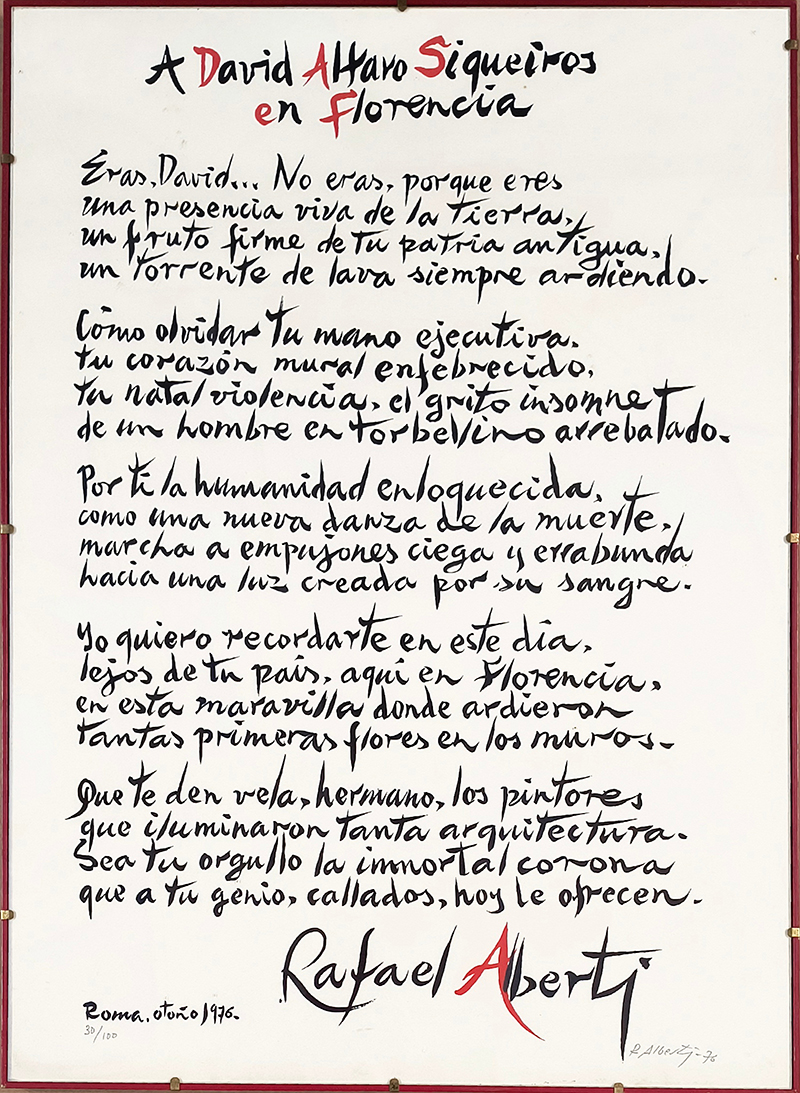 A David Alfaro Siqueiros
en Florencia
Eras, David... No eras, porque eres
una presencia viva de la tierra,
un fruto firme de tu patria antigua,
un torrente de lava siempre ardiendo.
Cómo olvidar tu mano ejecutiva,
tu corazón mural enfebrecido,
tu natal violencia, el grito insomne
de un hombre en torbellino arrebatado.
Por ti la humanidad enloquecida,
como una nueva danza de la muerte,
marcha a empujones ciega y errabunda
hacia una luz creada por su sangre.
Yo quiero recordarte en este día,
lejos de tu país, aquí en Florencia,
en esta maravilla donde ardieron
tantas primeras flores en los muros.
Que te den vela, hermano, los pintores
que iluminaron tanta arquitectura.
Sea tu orgullo la immortal corona
que a tu genio, callados, hoy le ofrecen.
Rafael Alberti
Roma, otoño 1976.
30/100
R Alberti-76